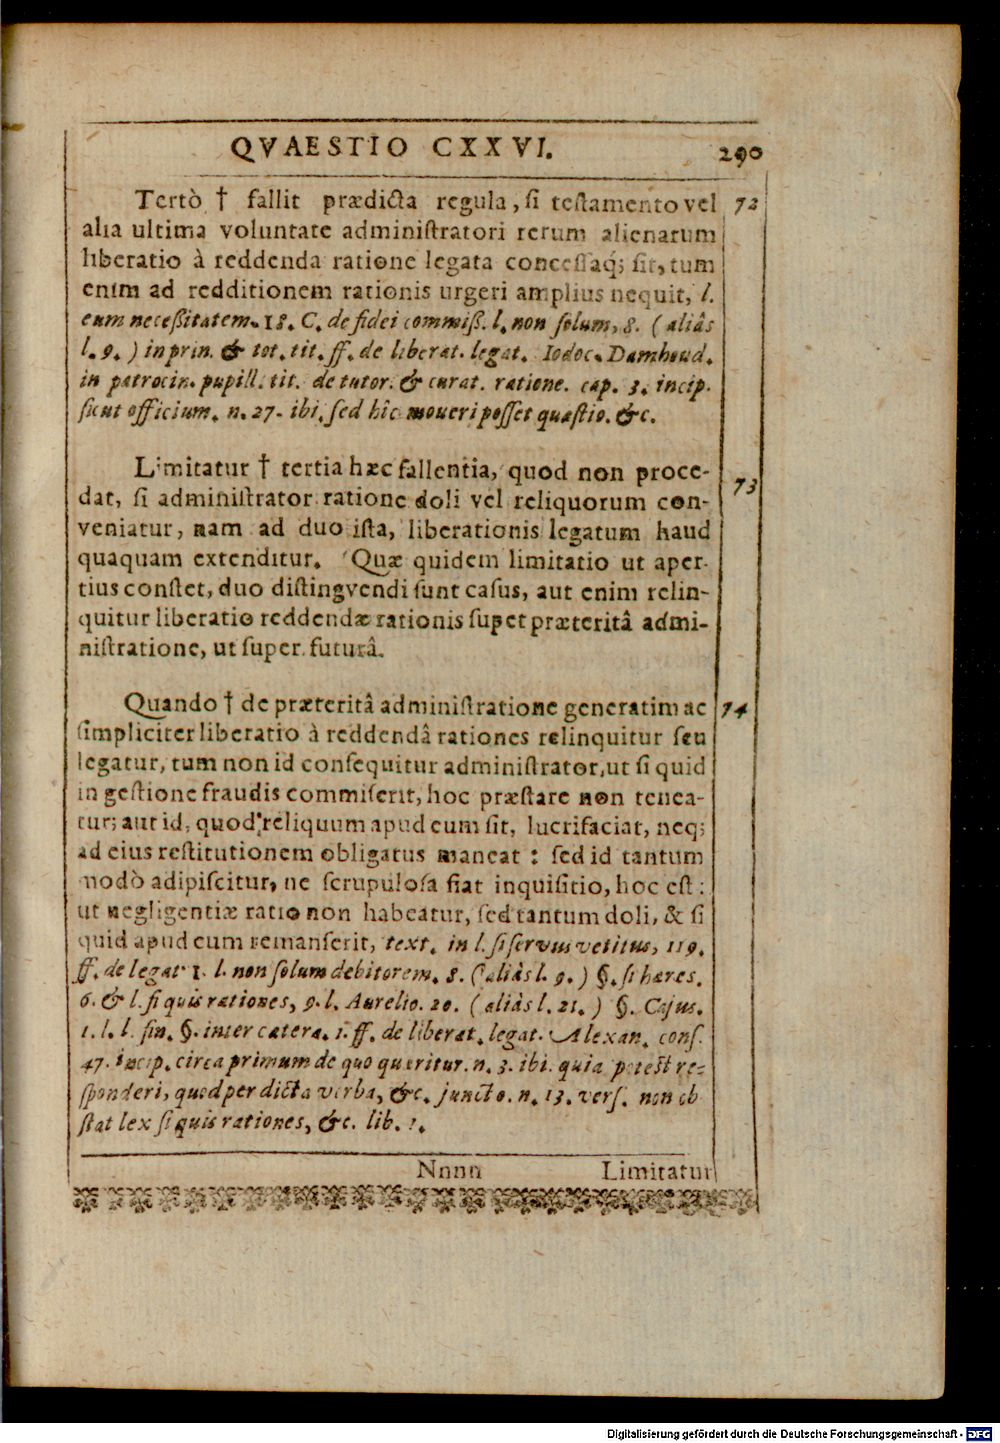 QVAESTIO CXXVI. 290
Tertò † fallit prædicta regula, si testamento vel 72
alia ultima voluntate administratori rerum alienarum
liberatio à reddenda ratione legata concessaq; sit, tum
enim ad redditionem rationis urgeri amplius nequit, l.
cum necessitatem. 18. C. de fidei commiss. l. non solum, 8. (aliâs
l. 9.) in prin. & tot. tit. ff. de liberat. legat. Iodoc. Damhoud.
in patrocin. pupill. tit. de tutor. & curat. ratione. cap. 3. incip.
sicut officium. n. 27. ibi, sed hîc moueri posset quæstio. &c.
Limitatur † tertia hæc fallentia, quod non proce- 73
dat, si administrator ratione doli vel reliquorum con-
veniatur, nam ad duo ista, liberationis legatum haud
quaquam extenditur. Quæ quidem limitatio ut aper-
tius constet, duo distingvendi sunt casus, aut enim relin-
quitur liberatio reddendæ rationis super præteritâ admi-
nistratione, ut super futurâ.
Quando † de præteritâ administratione generatim ac 74
simpliciter liberatio à reddendâ rationes relinquitur seu
legatur, tum non id consequitur administrator, ut si quid
in gestione fraudis commiserit, hoc præstare non tenea-
tur; aut id, quod reliquum apud eum sit, lucrifaciat, neq;
ad eius restitutionem obligatus maneat : sed id tantum
modò adipiscitur, ne scrupulosa fiat inquisitio, hoc est:
ut negligentiæ ratio non habeatur, sed tantum doli, & si
quid apud eum remanserit, text. in l. si servus vetitus, 119.
ff. de legat. 1. l. non solum debitorem. 8. (aliâs l. 9.) §. si hæres.
6. & l. si quis rationes, 9. l. Aurelio. 20. (aliâs l. 21.) §. Cajus.
1. l. l. fin. §. inter cætera. 1. ff. de liberat. legat. Alexan. cons.
47. incip. circa primum de quo quæritur. n. 3. ibi. quia potest re-
sponderi, quod per dicta verba, &c. juncto. n. 13. vers. non ob
stat lex si quis rationes, &c. lib. 1.
Nnnn Limitatur
Digitalisierung gefördert durch die Deutsche Forschungsgemeinschaft - DFG